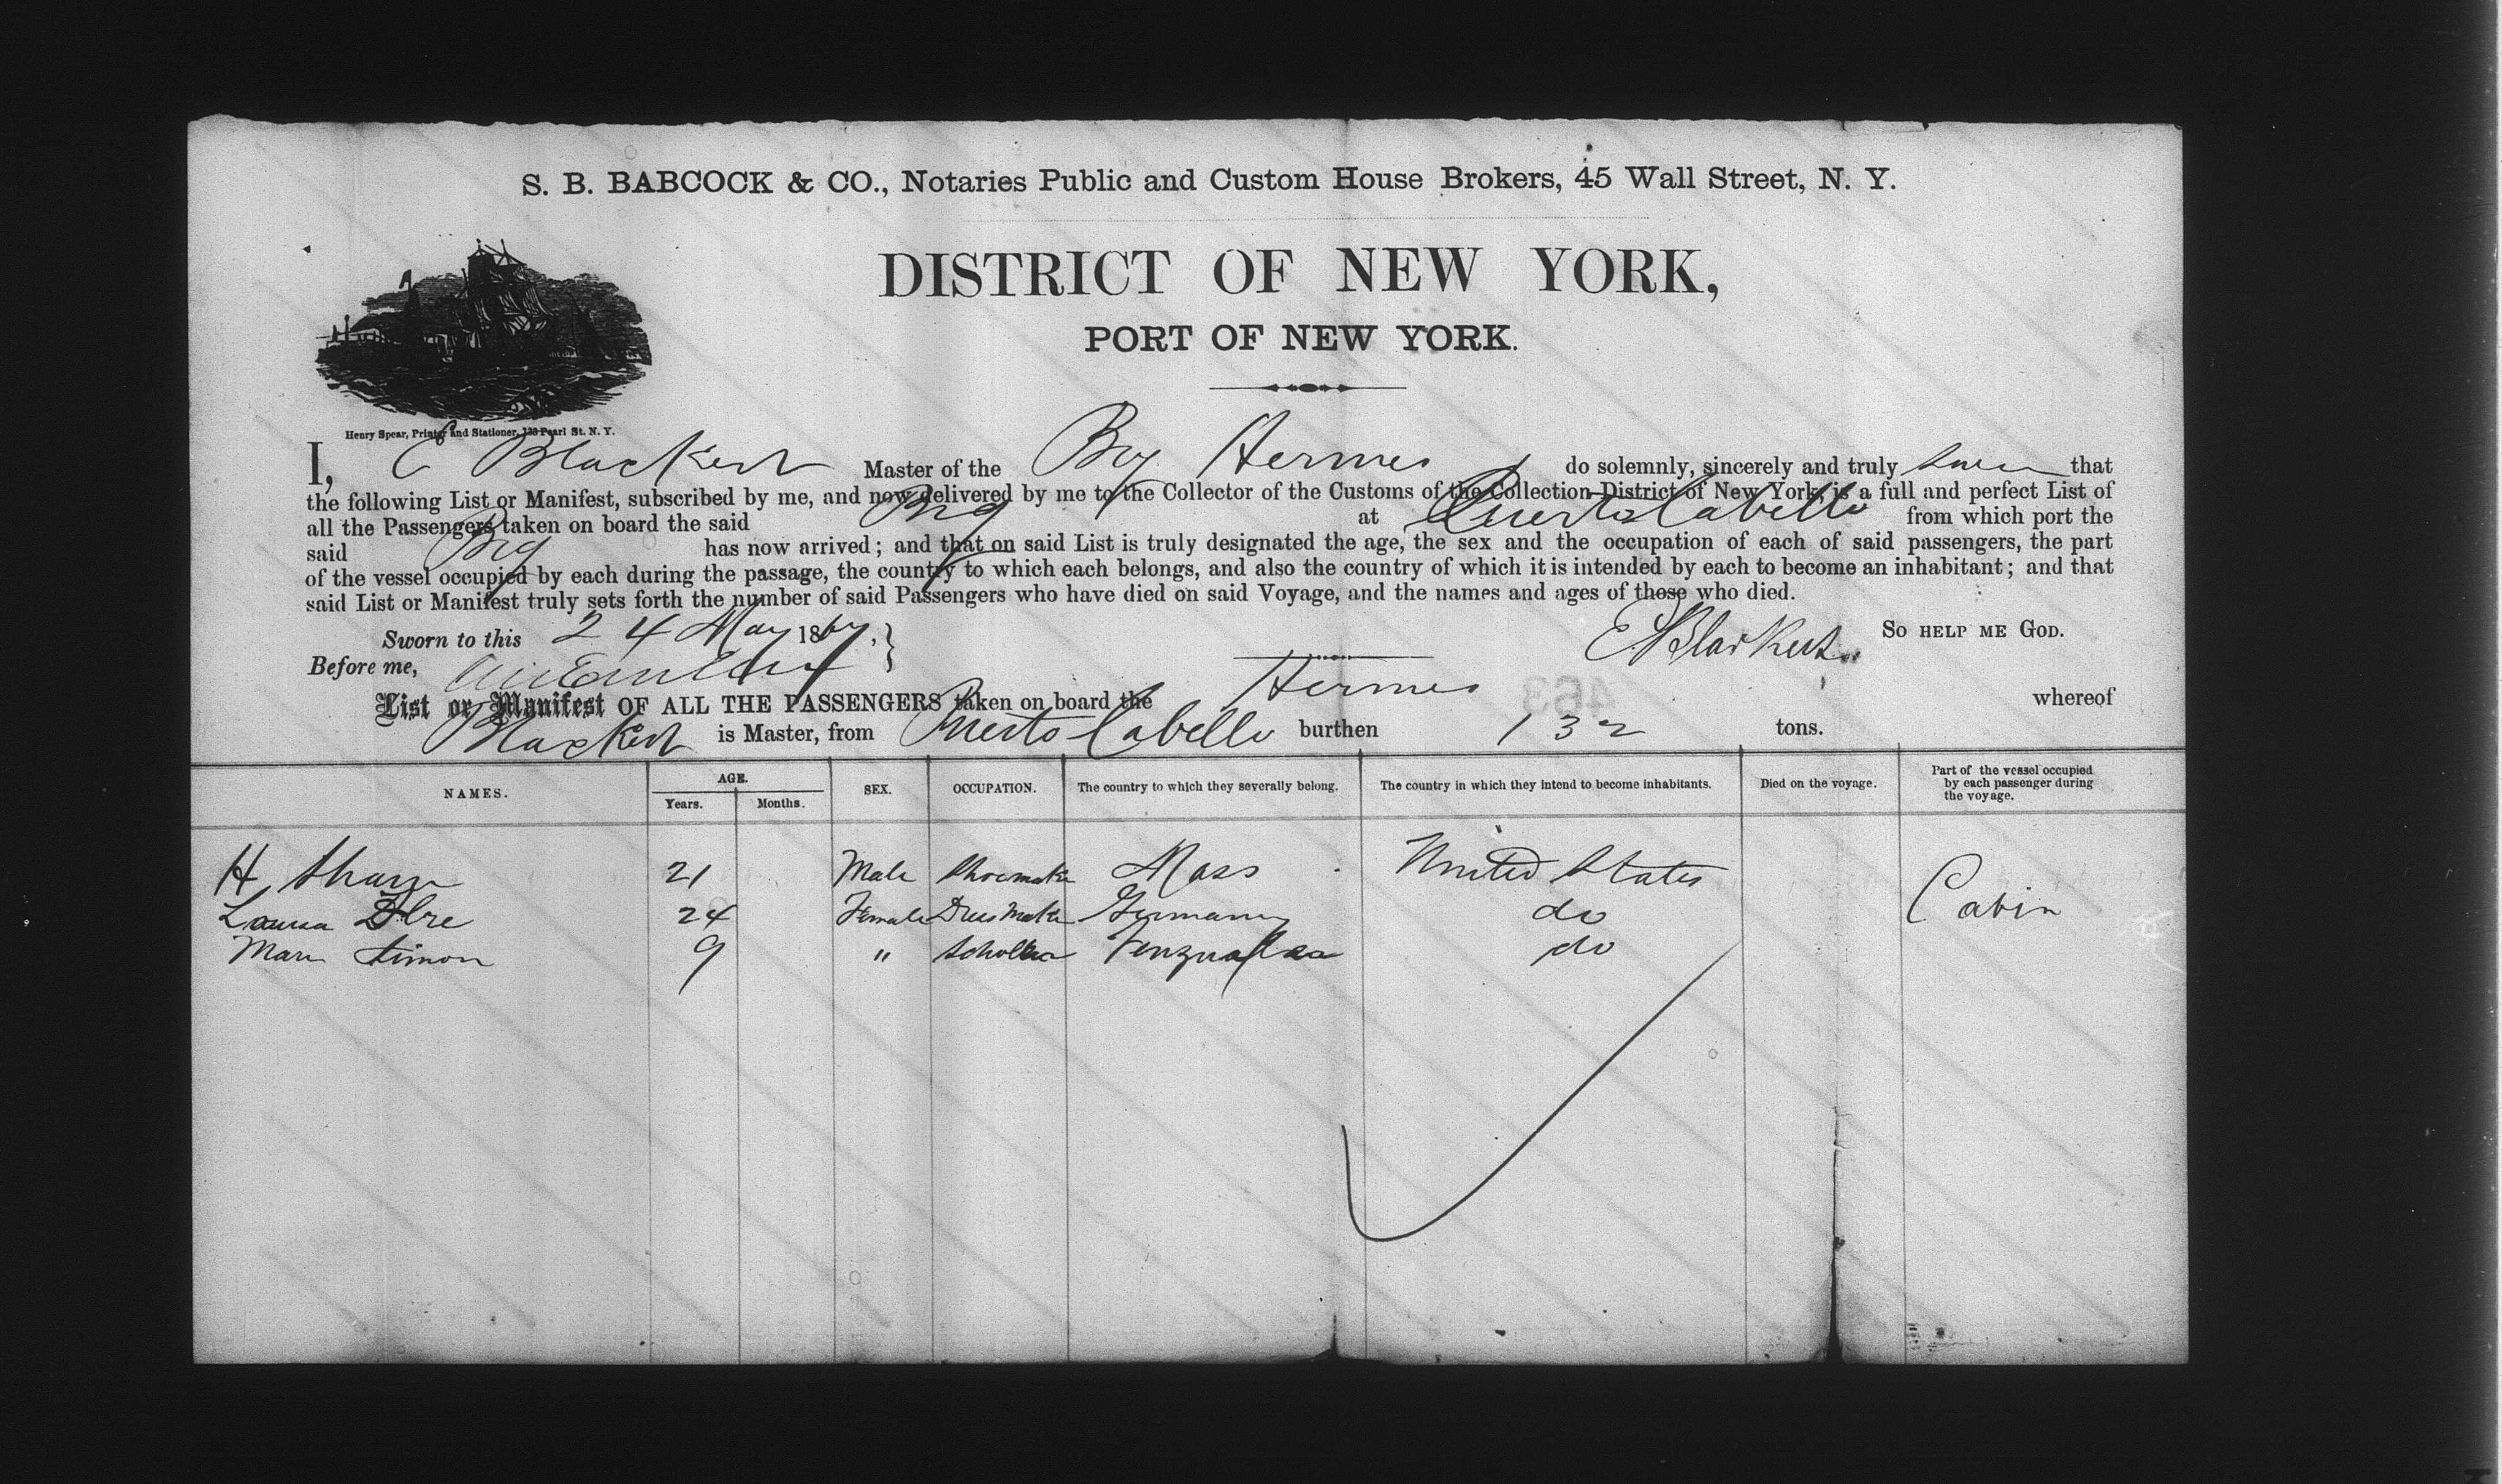 S. B. BABCOCK & CO., Notaries Public and Custom House Brokers, 45 Wall Street, N. Y.
DISTRICT OF NEW YORK,
PORT OF NEW YORK.
Henry Spear, Printer and Stationer, Pearl St. N. Y.
I, E Blackert Master of the Brg Hermes do solemnly, sincerely and truly that
the following List or Manifest, subscribed by me, and now delivered by me to the Collector of the Customs of the Collection District of New York, is a full and perfect List of
all the Passengers taken on board the said Brg at Puerto Cabello from which port the
said Brg has now arrived; and that on said List is truly designated the age, the sex and the occupation of each of said passengers, the part
of the vessel occupied by each during the passage, the country to which each belongs, and also the country of which it is intended by each to become an inhabitant; and that
said List or Manifest truly sets forth the number of said Passengers who have died on said Voyage, and the names and ages of those who died.
Sworn to this 24 May 1867. E Blackert SO HELP ME GOD.
Before me,
463
List or Manifest OF ALL THE PASSENGERS taken on board the Hermes whereof
Blackert is Master, from Puerto Cabello burthen 132 tons.
NAMES. AGE. Years. Months. SEX. OCCUPATION. The country to which they severally belong. The country in which they intend to become inhabitants. Died on the voyage. Part of the vessel occupied by each passenger during the voyage.
H 21 Male Shoemaker Mass United States Cabin
Laura 24 Female Dress Maker Germany do
Mary Simon 9 " do